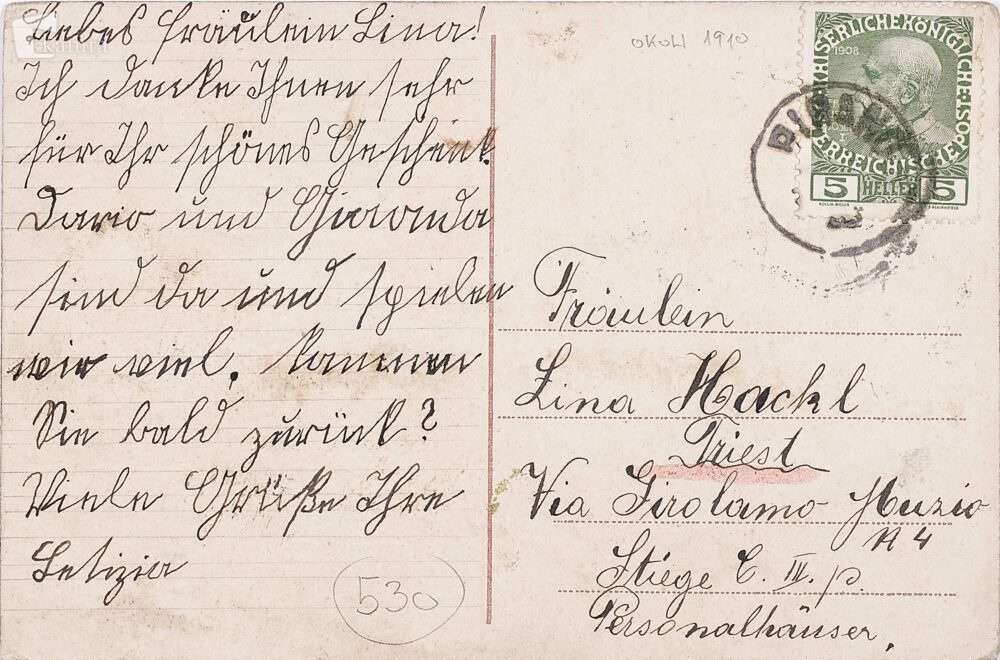 Liebes Fräulein Lina!
Ich danke Ihnen sehr
für Ihr schönes Geschenk.
Dario und
sind da und spielen
wir viel. Kommen
Sie bald zurück?
Viele Grüße Ihre
Letizia
530
OKOLI 1910
KAISERLICHE KÖNIGLICHE
ÖSTERREICHISCHE POST
1908
5 HELLER 5
Fräulein
Lina Hackl
Triest
Via Girolamo Muzio
N 4
Stiege C. III. p.
Personalhäuser.
kamra